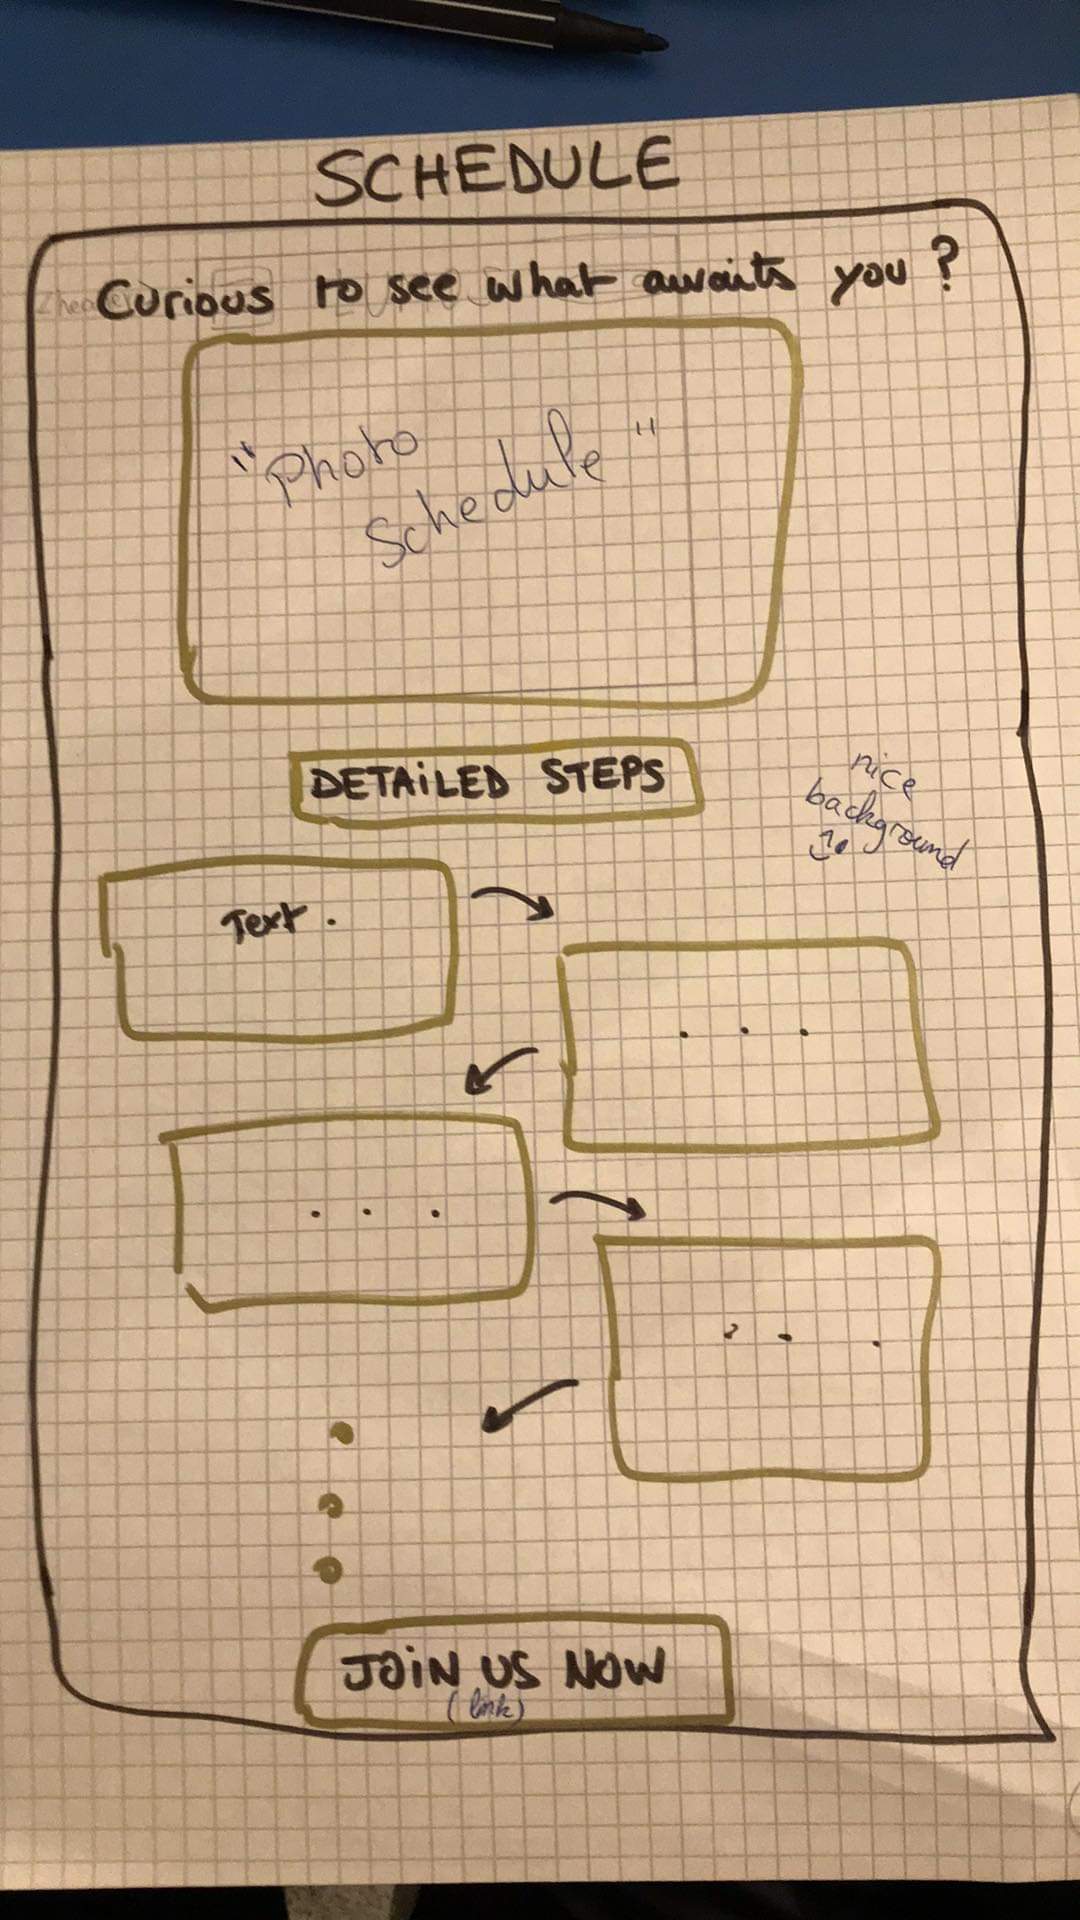 SCHEDULE
Curious to see what awaits you?
"Photo
Schedule"
DETAILED STEPS
nice
background
Text.
. . .
. . .
. . .
JOIN US NOW
(link)